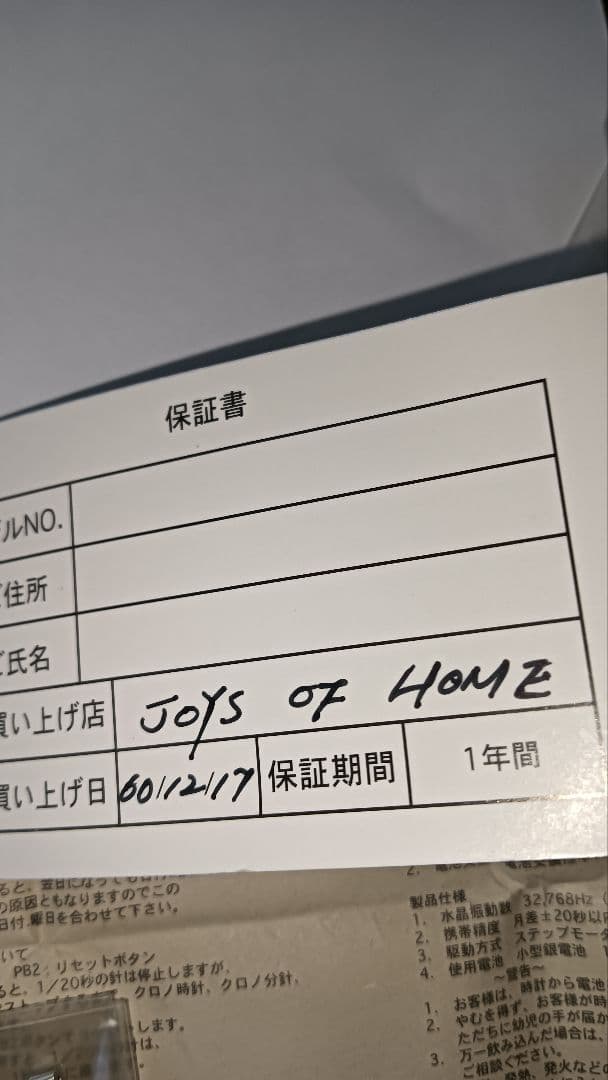 保証書
ルNO.
住所
氏名
買い上げ店 JOYS OF HOME
買い上げ日 60/12/17 保証期間 1年間
ると、翌日になっても日付
の原因ともなりますのでこの
日付.曜日を合わせて下さい。
いて
PB2：リセットボタン
ると、1/20秒の針は停止しますが、
クロノ時針、クロノ分針、
します。
は、
製品仕様
1. 水晶振動数 32,768Hz（
2. 携帯精度 月差±20秒以
3. 駆動方式 ステップモータ
4. 使用電池 小型銀電池 1
～警告～
1. お客様は、時計から電池
2. やむを得ず、お客様が時
ただちに幼児の手が届か
3. 万一飲み込んだ場合は、
ご相談ください。
発熱、発火などの